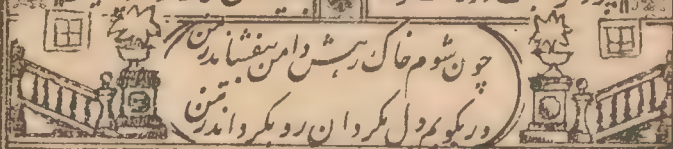 چون شوم خاک رهش دامن بیفشاند ز من
ور بگویم دل بگردان رو بگرداند ز من